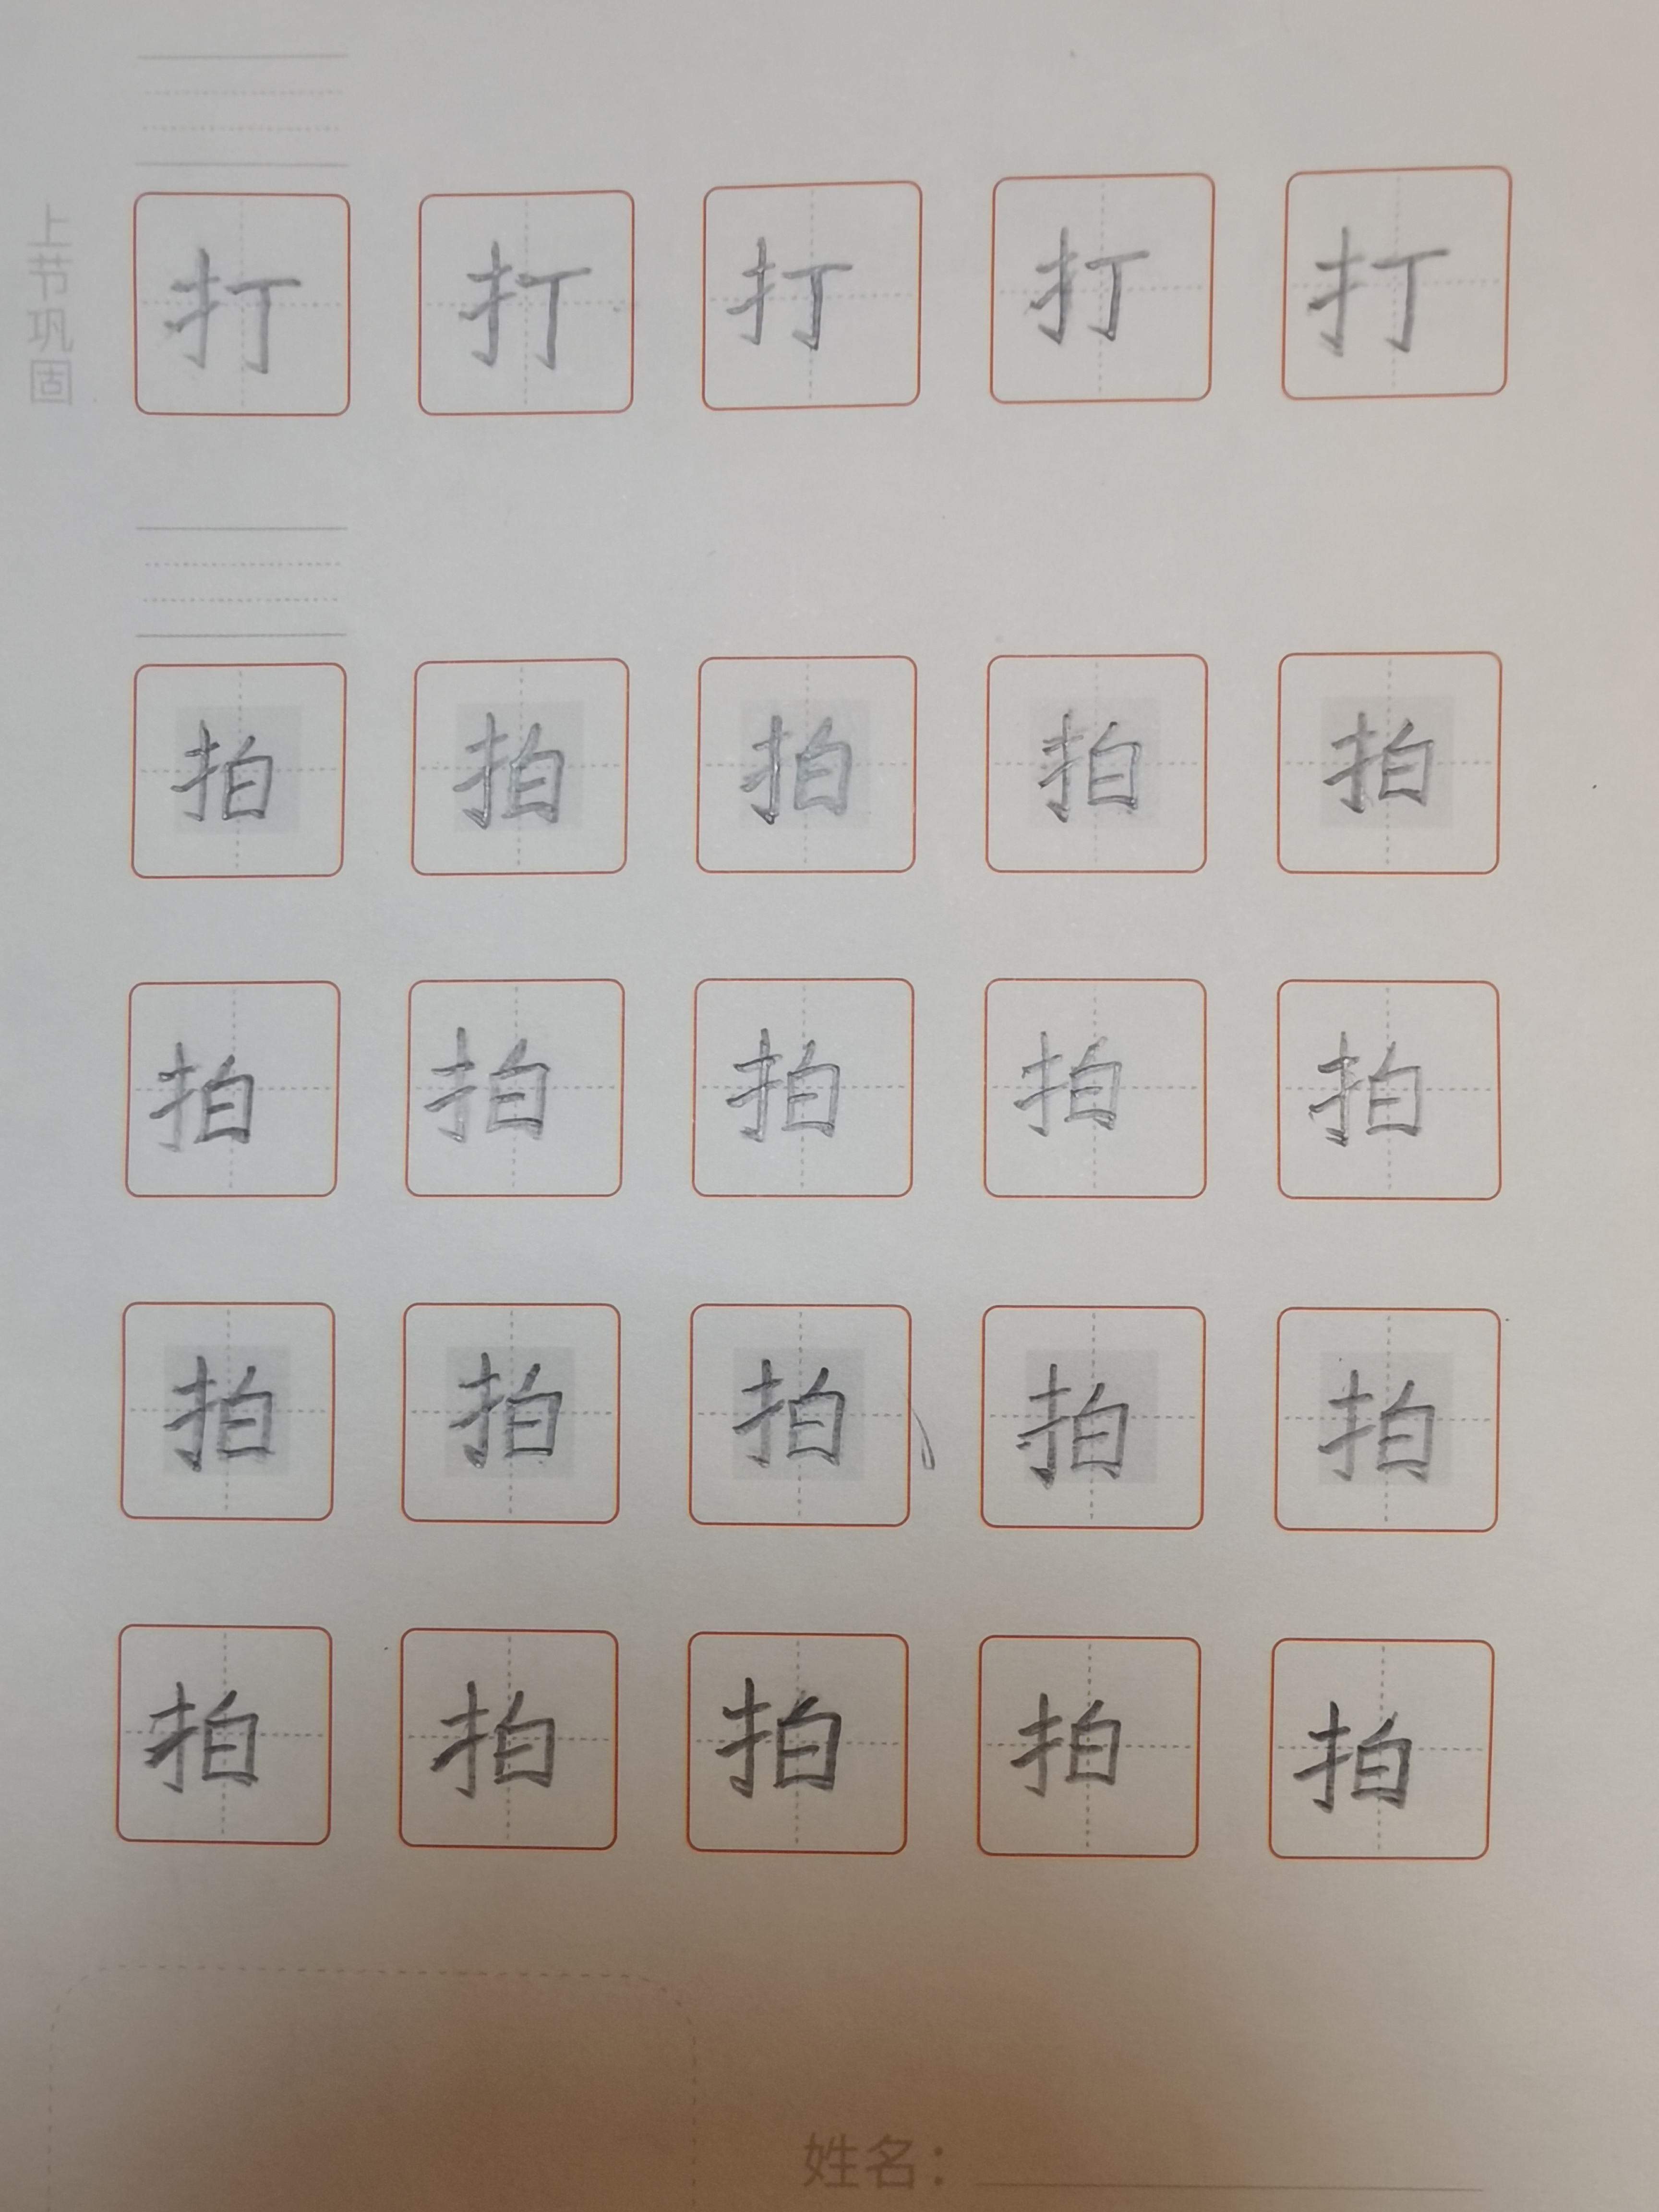 上节巩固
打 打 打 打 打
拍 拍 拍 拍 拍
拍 拍 拍 拍 拍
拍 拍 拍 拍 拍
拍 拍 拍 拍 拍
姓名：